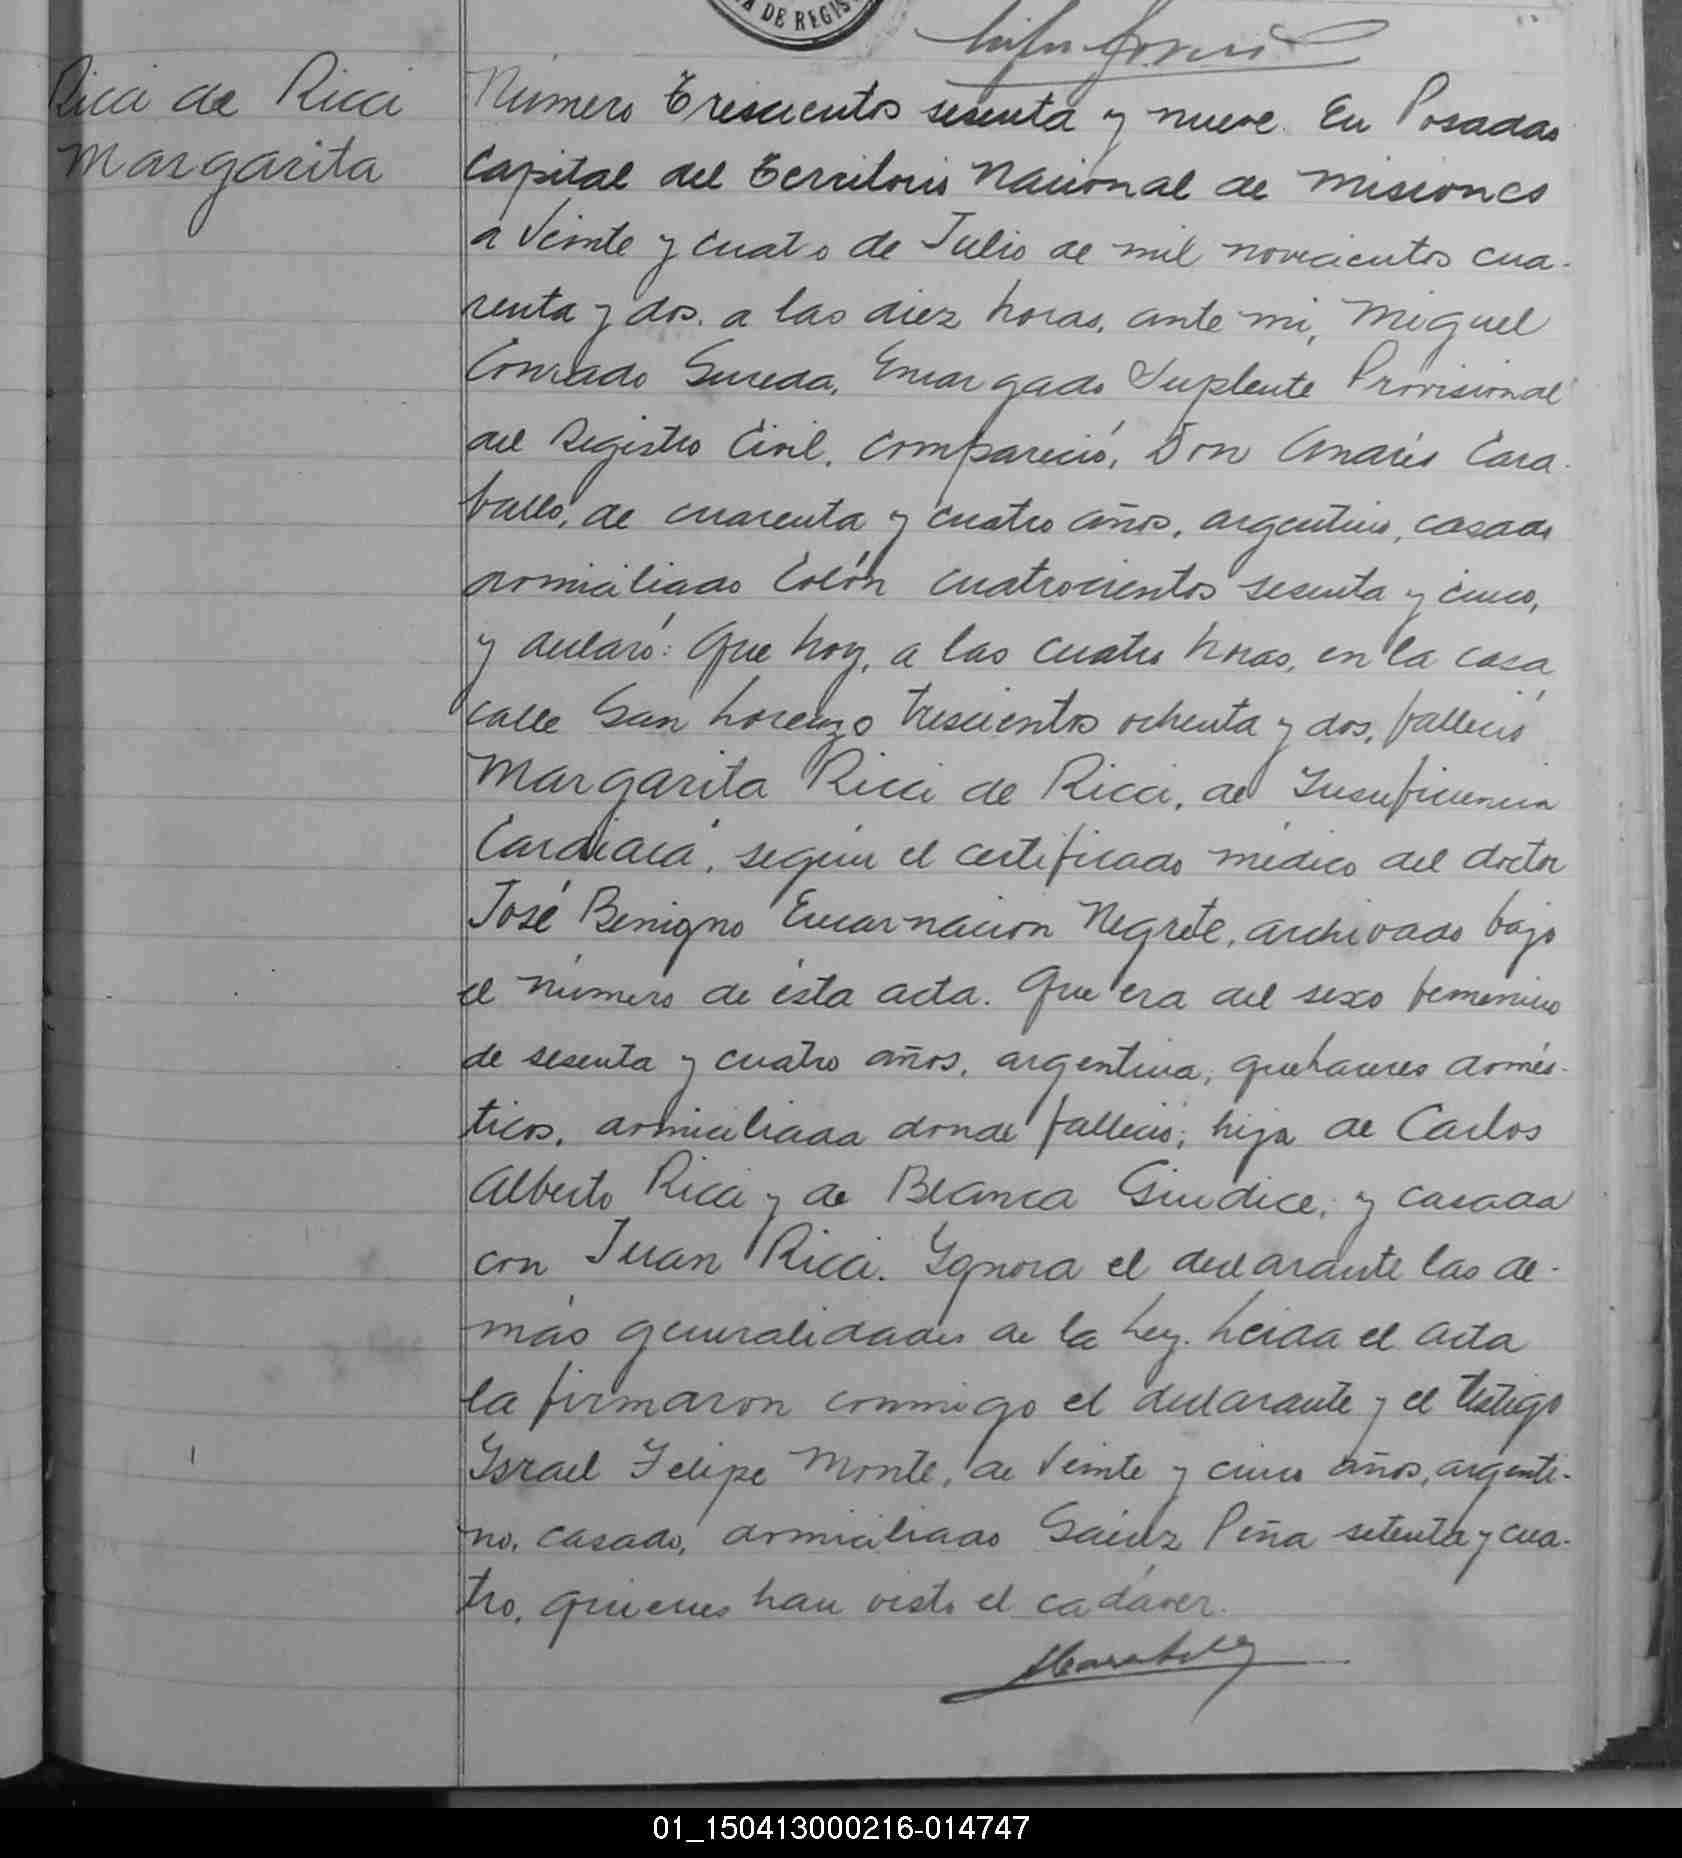 A DE REGIS
Ricci de Ricci
Margarita
Número Trescientos sesenta y nueve. En Posadas
Capital del Territorio Nacional de Misiones
a Veinte y cuatro de Julio de mil novecientos cua-
renta y dos. a las diez horas, ante mi, Miguel
Conrado Sureda, Encargado Suplente Provisional
del Registro Civil, compareció, Don Andrés Cara-
ballo, de cuarenta y cuatro años, argentino, casado
domiciliado Colón cuatrocientos sesenta y cinco,
y declaró: Que hoy, a las cuatro horas, en la casa
calle San Lorenzo trescientos ochenta y dos, falleció
Margarita Ricci de Ricci, de Insuficiencia
Cardíaca, según el certificado médico del doctor
José Benigno Encarnacion Negrete, archivado bajo
el número de ésta acta. Que era del sexo femenino
de sesenta y cuatro años, argentina, quehaceres domés-
ticos, domiciliada donde falleció; hija de Carlos
Alberto Ricci y de Blanca Giudice; y casada
con Juan Ricci. Ignora el declarante las de-
más generalidades de la Ley. Leida el acta
la firmaron conmigo el declarante y el testigo
Israel Felipe Monte, de Veinte y cinco años, argenti-
no, casado, domiciliado Saenz Peña setenta y cua-
tro, quienes han visto el cadáver.
01_150413000216-014747